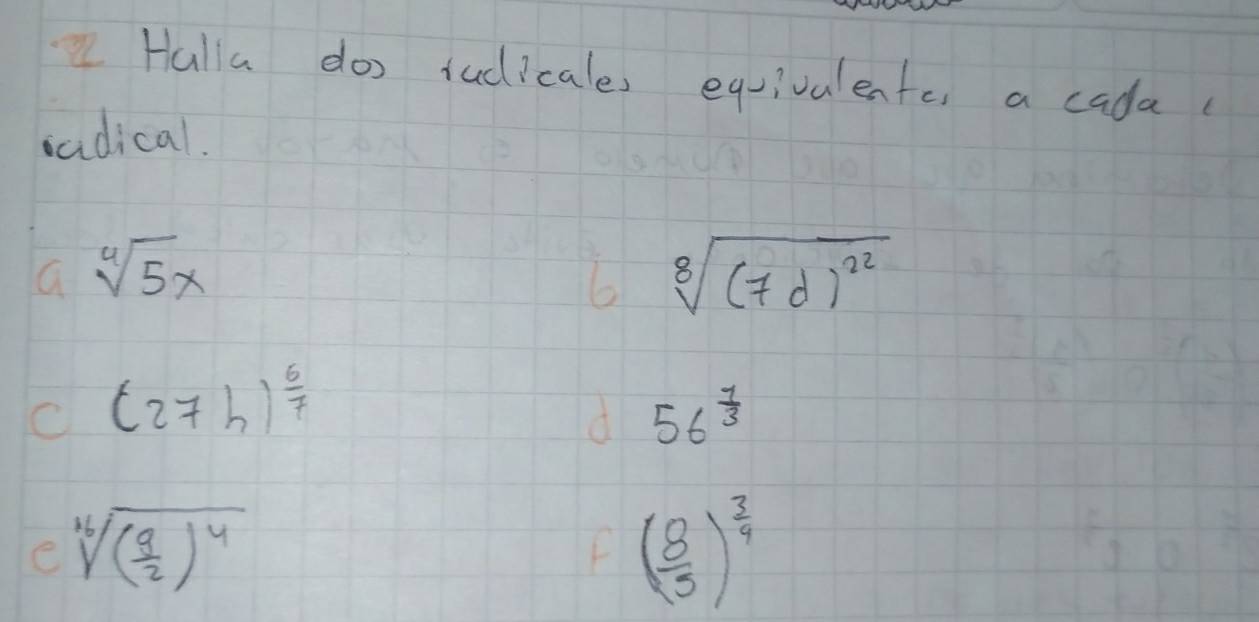 2 Halla dos radicales equivalentes a cada
radical.
a ∜5x b ⁸√(7d)²²
c (27h)^6/7 d 56^7/3
e ¹⁶√(9/2)⁴ f (8/5)^3/9